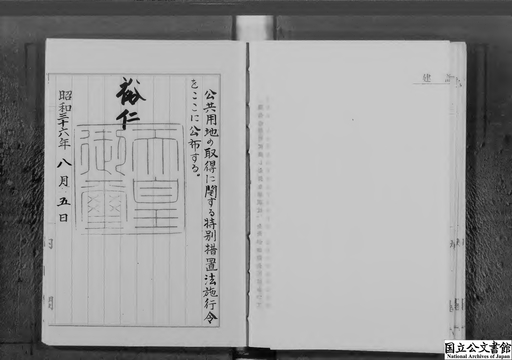 公共用地の取得に関する特別措置法施行令
をここに公布する。
裕仁
天皇
御璽
昭和三十六年 八月 五日
建
国立公文書館
National Archives of Japan